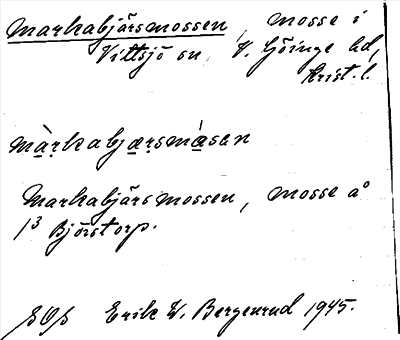 Markabjärsmossen, mosse i
Vittsjö sn, V. Göinge hd,
Krist. l.
màrkabjærsmåsen
Markabjärsmossen, mosse å
1³ Bjärstorp.
SOS Erik W. Bergenrud 1945.